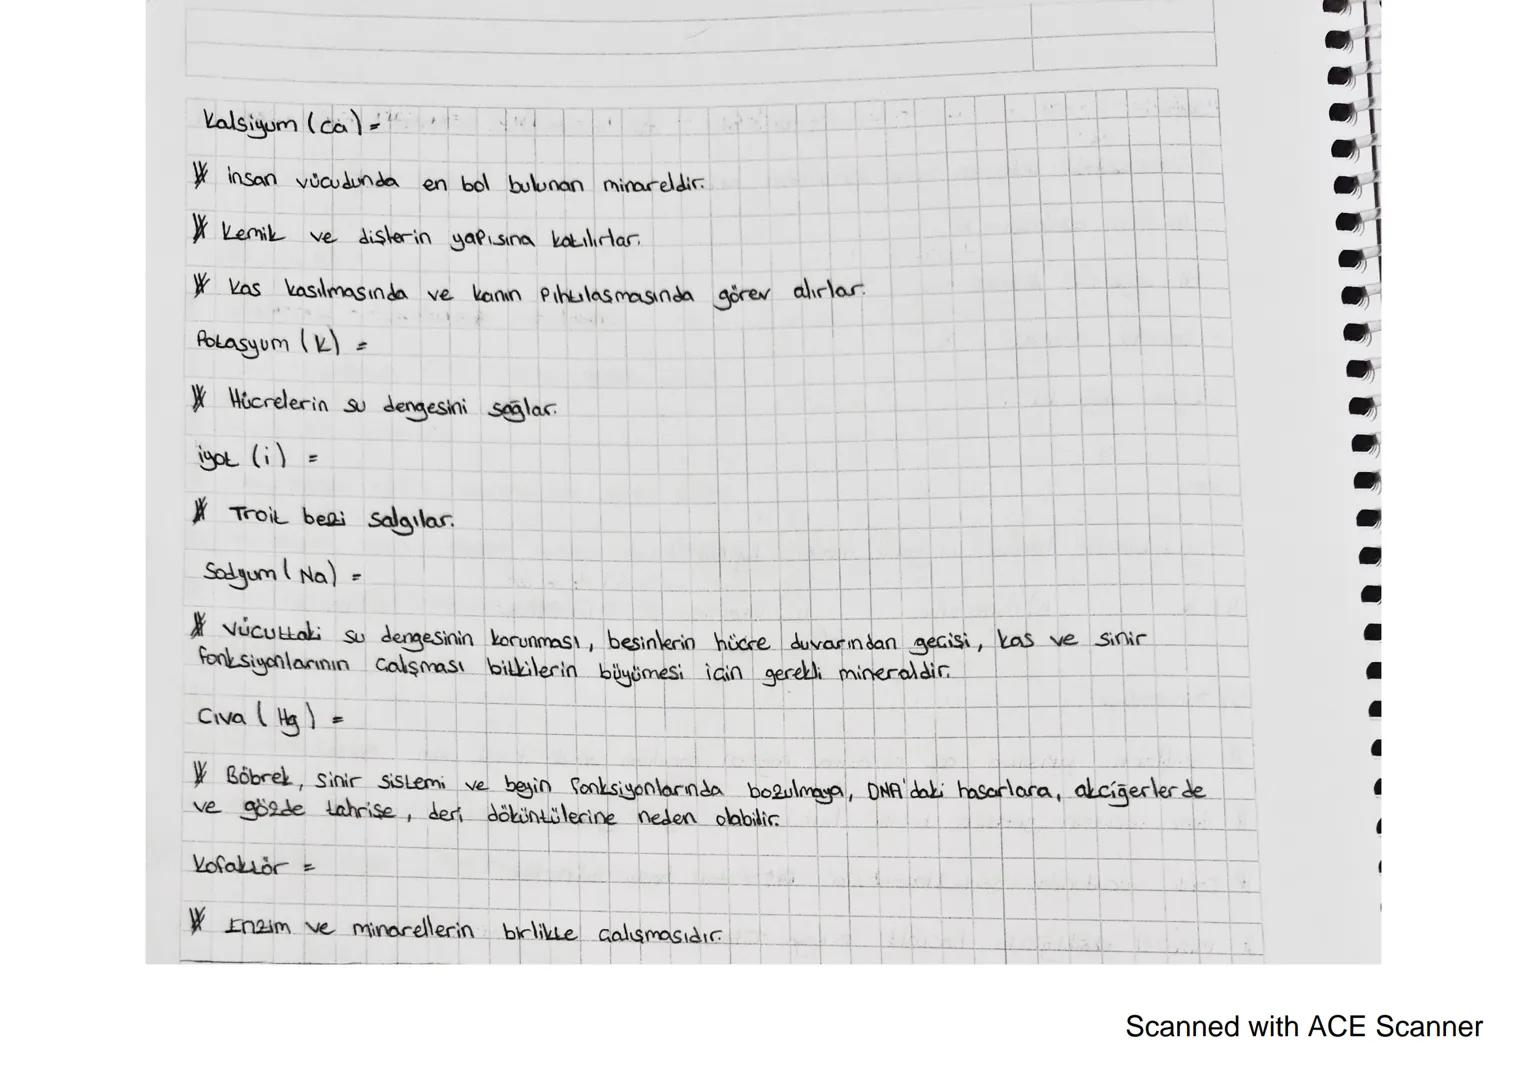 Kalsiyum (ca) =
* insan vücudunda en bol bulunan minareldir.
* Kemik ve dişlerin yapısına katılırlar.
* Kas kasılmasında ve kanın pıhtılasmasında görev alırlar.
Potasyum (K) =
* Hücrelerin su dengesini sağlar.
iyot (i) =
* Troit bezi salgılar.
Sodyum (Na) =
* vücuttaki su dengesinin korunması, besinlerin hücre duvarından geçişi, kas ve sinir
fonksiyonlarının çalışması bitkilerin büyümesi için gerekli mineraldir.
Cıva (Hg) =
* Böbrek, sinir sistemi ve beyin fonksiyonlarında bozulmaya, DNA'daki hasarlara, akciğerlerde
ve gözde tahrişe, deri döküntülerine neden olabilir.
Kofaktör =
* Enzim ve minarellerin birlikte çalışmasıdır.
Scanned with ACE Scanner